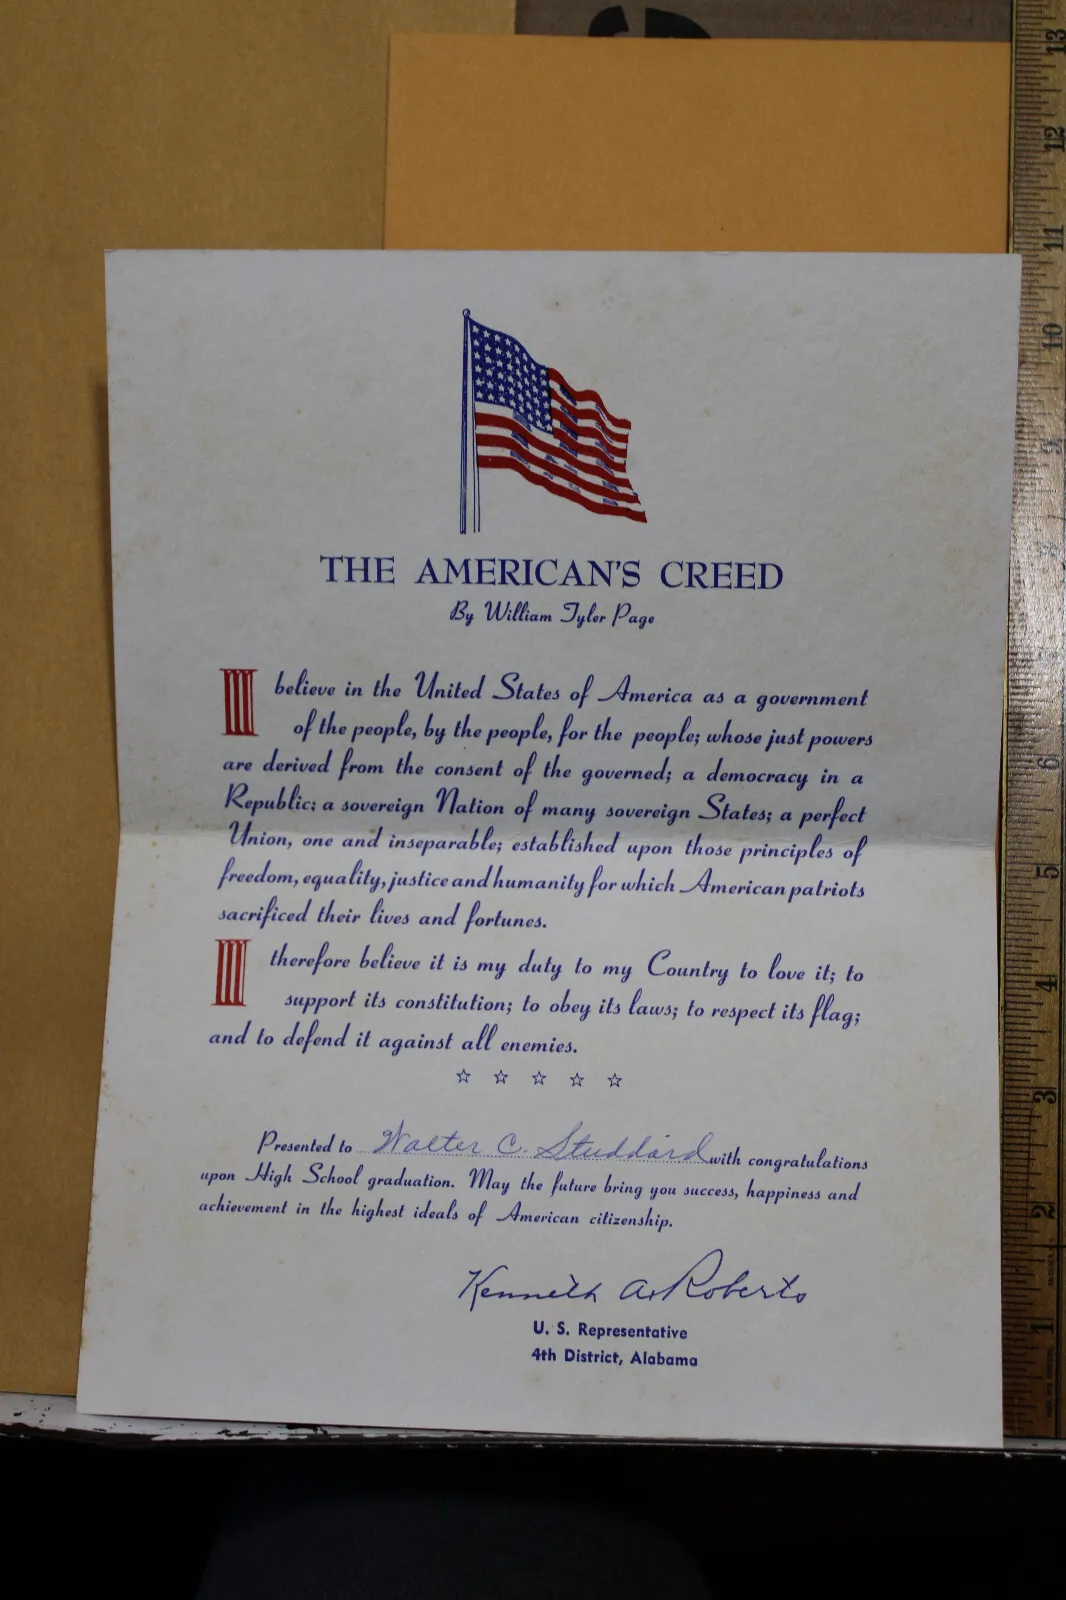 THE AMERICAN'S CREED
By William Tyler Page
I believe in the United States of America as a government
of the people, by the people, for the people; whose just powers
are derived from the consent of the governed; a democracy in a
Republic; a sovereign Nation of many sovereign States; a perfect
Union, one and inseparable; established upon those principles of
freedom, equality, justice and humanity for which American patriots
sacrificed their lives and fortunes.
I therefore believe it is my duty to my Country to love it; to
support its constitution; to obey its laws; to respect its flag;
and to defend it against all enemies.
☆ ☆ ☆ ☆ ☆
Presented to Walter C. Studdard with congratulations
upon High School graduation. May the future bring you success, happiness and
achievement in the highest ideals of American citizenship.
Kenneth A. Roberts
U. S. Representative
4th District, Alabama
13
12
11
10
9
6
5
4
3
2
1